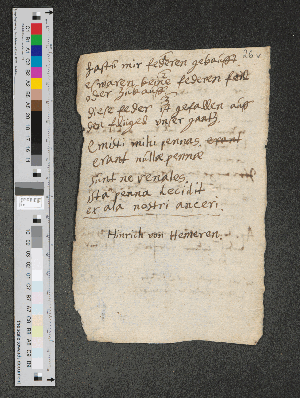 26.
hastu mir federen gekaufft
es waren keine federen feil
oder zukauff
diese feder ist gefallen auß
den flügel unser ganß.
Emisti mihi pennas
erant nullæ pennæ
sunt ne venales
ista penna decidit
ex ala nostri anceri.
Hinrich von Hemeren.